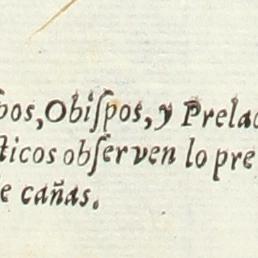 pos, Obiſpos, y Prelac
ticos obſerven lo pre
e cañas.